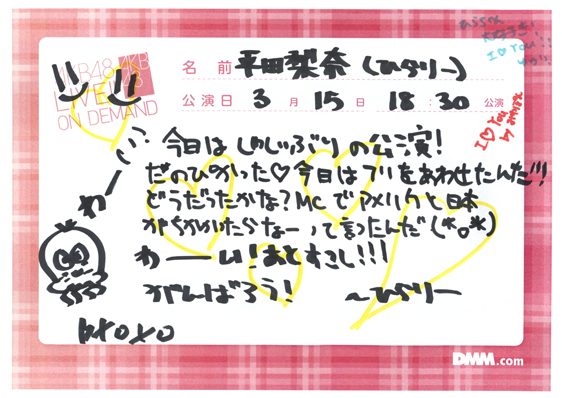 AKB48 AKB48
LIVE!!
ON DEMAND
名 前 平田梨奈(ひらりー)
公演日 3 月 15 日 18 : 30 公演
大好き!
I♡You!!
I♡You
by
今日はひさしぶりの公演!
たのしかった♡今日はフリをあわせたんだ!!!
どうだったかな?MCでアメリカと日本
がちかいったらなーって言ったんだ(*o*)
わーい!あとすこし!!!
がんばろう! 〜ひらりー
わー
xoxo
DMM.com